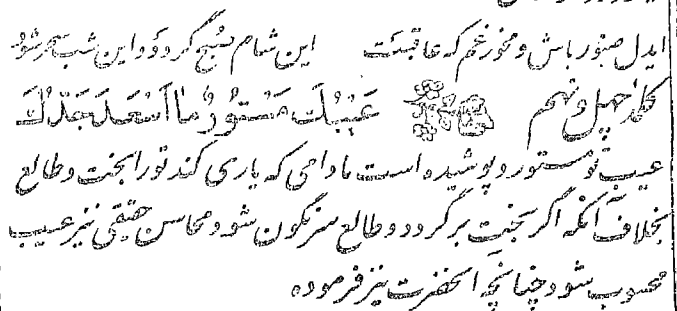 ایدل صبور باش و مخور غم که عاقبت این شام صبح گردد و این شب سحر شود
کلمهٔ چهل و نهم عَیْبُكَ مَسْتُورٌ مَا اَسْعَدَكَ جَدُّكَ
عیب تو مستور و پوشیده است مادامی که یاری کند تو را بخت و طالع
بخلاف آنکه اگر بخت برگردد و طالع سرنگون شود محاسن حقیقی نیز عیب
محسوب شود چنانچه آنحضرت نیز فرموده